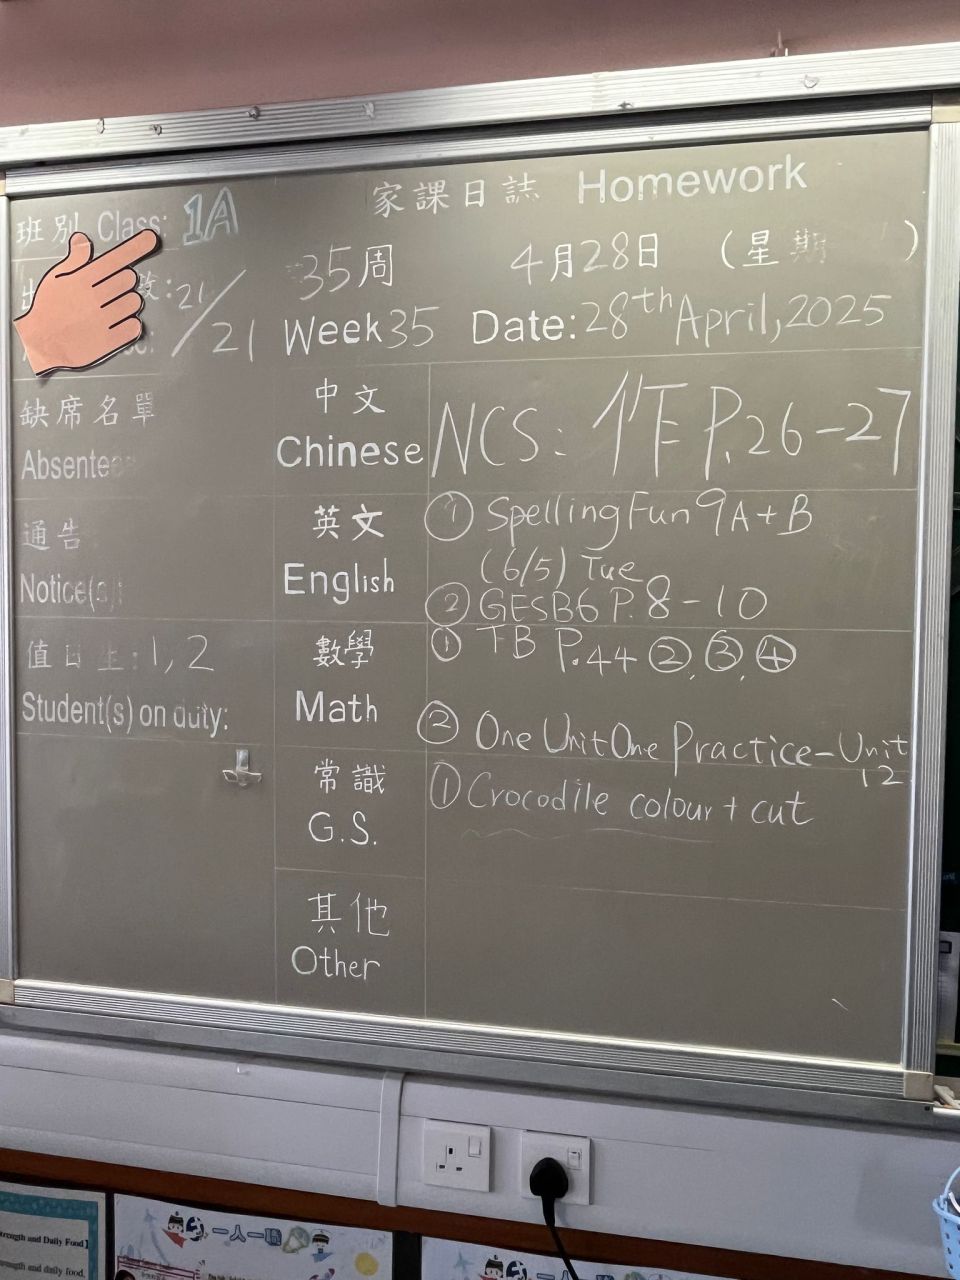 家課日誌 Homework
班別 Class: 1A
21/21
35周 4月28日 (星期 )
Week 35 Date: 28th April, 2025
缺席名單
Absentee
通告
Notice(s):
值日生: 1, 2
Student(s) on duty:
中文
Chinese
NCS: 作 P.26-27
英文
English
① Spelling Fun 9A+B
(6/5) Tue
② GESB6 P.8-10
數學
Math
① TB P.44 ②,③,④
② One Unit One Practice-Unit
12
常識
G.S.
① Crocodile colour + cut
其他
Other
一人一職
trength and Daily Food】
rength and daily food.